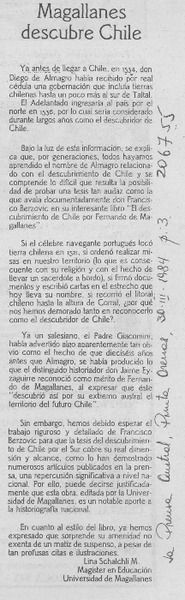 Magallanes
descubre Chile
Ya antes de llegar a Chile, en 1534, don
Diego de Almagro había recibido por real
cédula una gobernación que incluía tierras
chilenas hasta un poco más al sur de Taltal.
El Adelantado ingresaría al país por el
norte en 1536, por lo cual sería considerado
durante largos años como el descubridor de
Chile.
Bajo la luz de esta información, se expli-
ca que, por generaciones, todos hayamos
aprendido el nombre de Almagro relaciona-
do con el descubrimiento de Chile y se com-
prende lo difícil que resulta la posibili-
dad de probar una tesis tan audaz como la
que avala documentadamente don Francis-
co Berzovic en su interesante libro "El des-
cubrimiento de Chile por Fernando de Ma-
gallanes".
Si el célebre navegante portugués locó
tierra chilena en 1521, si ordenó realizar mi-
sas en nuestro territorio (lo que es conse-
cuente con su religión y con el hecho de
llevar un sacerdote a bordo), si firmó docu-
mentos y escribió cartas en el estrecho que
hoy lleva su nombre, si recorrió el litoral
chileno hasta la altura de Corral, ¿por qué
nos hemos demorado tanto en reconocerlo
como el descubridor de Chile?.
Ya un salesiano, el Padre Giacomini,
había advertido algo apasionante como es
el mérito del hecho de que dieciséis años
antes que Almagro, se había producido lo
que el distinguido historiador don Jaime Ey-
zaguirre reconoció como mérito de Fernan-
do de Magallanes, al expresar que éste
"descubrió así por su extremo austral el
territorio del futuro Chile".
Sin embargo, hemos debido esperar el
trabajo riguroso y detallado de Francisco
Berzovic para que la tesis del descubrimien-
to de Chile por el Sur cobre su real dimen-
sión y alcance, como lo han demostrado
numerosos artículos publicados en la pren-
sa, una repercusión significativa a nivel na-
cional. Por ello, puede decirse justificada-
mente que esta obra, editada por la Univer-
sidad de Magallanes, es un notable aporte a
la historiografía nacional.
En cuanto al estilo del libro, ya hemos
expresado que sorprende su amenidad no
exenta de un matiz de suspenso, a pesar de
tan profusas citas e ilustraciones.
Lina Schalchli M.
Magister en Educación
Universidad de Magallanes
La Prensa Austral, Punta Arenas, 30-III-1984 p. 3. 206755